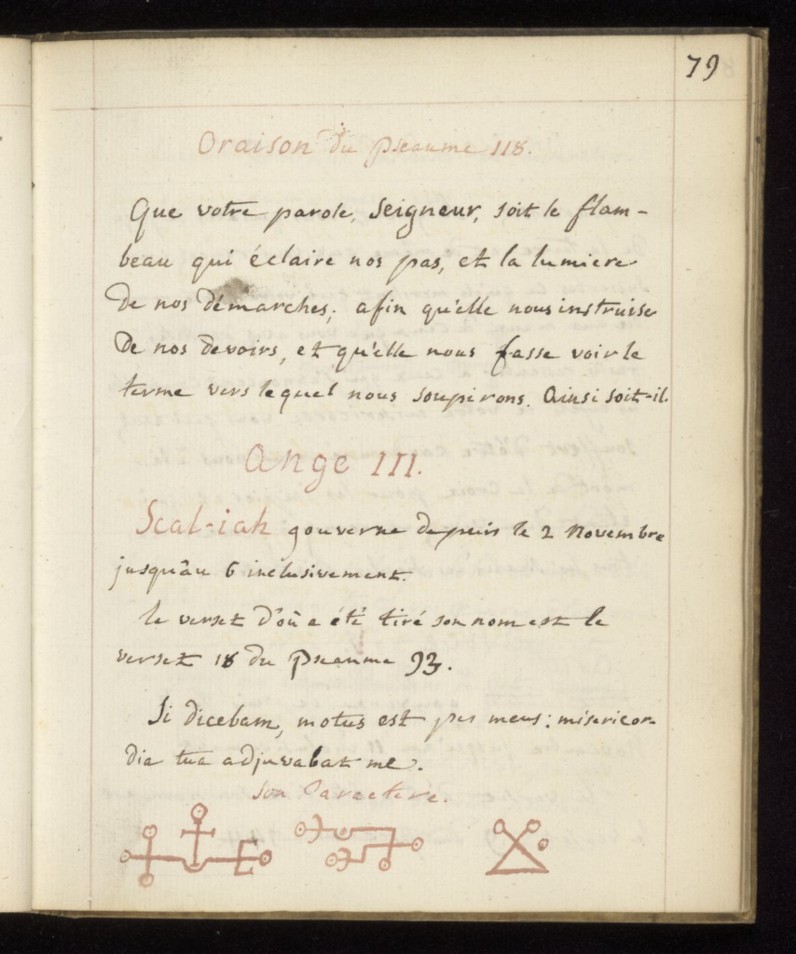 79
Oraison du Pseaume 118.
Que votre parole, Seigneur, soit le flam-
beau qui éclaire nos pas, et la lumiere
De nos démarches; afin qu'elle nous instruise
De nos devoirs, et qu'elle nous fasse voir le
terme vers lequel nous soupirons. Ainsi soit-il.
Ange III.
Scal-iah gouverne depuis le 2 Novembre
jusqu'au 6 inclusivement.
le verset d'où a été tiré son nom est le
verset 18 du Pseaume 93.
Si dicebam, motus est pes meus: misericor-
dia tua adjuvabat me.
Son Caractere.